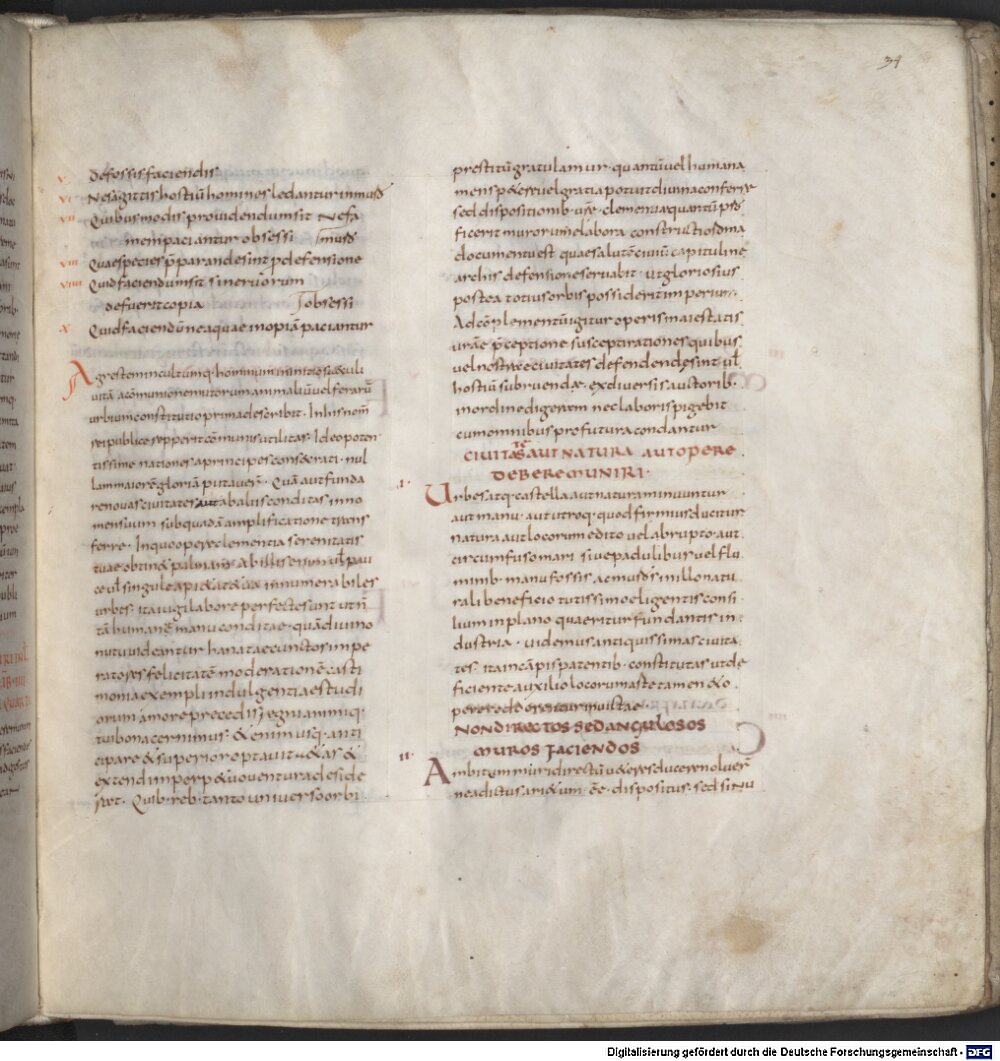 34
v Defossis faciendis
vi Ne sagittis hostiū homines ledantur in muris
vii Quibus modis prouidendum sit Ne fa
mem paciantur obsessi
viii Quae species p̄parande sint p defensione
viiii Quid faciendum sit si neruorum
defuerit copia obsessi
x Quid faciendū ne aquae inopiā paciantur
Agrestem incultumq· hominum in initio saeculi
uitā a cōmunione mutorum animaliū uel ferarū
urbium constitutio prima describit· In his nom̄
rei publice repperit cōmunis utilitas· Ideo poten
tissime nationes a principes consecrati· nul
lam maiorē gloriā putauer̄· Quā aut funda
re nouas ciuitates aut ab aliis conditas in no
men suum sub quadā amplificatione trans
ferre· In quo opere clementia serenitatis
tuae obtin& palmam· Ab illis enim uł pau
ce uł singule
urbes· ita iugi labore perfecte sunt ut n̄
tā humanę manu conditae· quā diuino
nutu uideantur
ratores felicitatē moderationē casti
monia exempli indulgentiae studi
orum amore precedis· Regni animiq·
tui bona cernimus·
cipare & superior optauit
extendi
Quib· reb· tanto uniuerso orbi
prestitū gratulamur· quantū uel humana
mens petere uel gratia potuit diuina conferre
sed dispositionib· clementiae quantū
ficerit murorum elabora constructio Roma
documentū est quae salutē ciuiū capituline
archis defensione seruabit· ut gloriosius
postea totius orbis possiderit imperium·
Ad cōplementū igitur operis maiestatis
urāe p̄ceptione suscepti rationes quibus
uel nostrae ciuitates defendendę sint uł
hostiū subruendae· ex diuersis auctorib·
in ordine digeram nec laboris pigebit
cum omnibus profutura condantur
CIUITATES AUT NATURA AUT OPERE
DEBERE MUNIRI·
i· Urbes atq· castella aut natura minuuntur
aut manu· aut utroq· quod firmius ducitur
natura aut locorum edito uel abrupto· aut
circumfuso mari siue padulibus uel flu
minib· manu fossis ac muris in illo natu
rali beneficio tutissimo eligentis consi
lium in plano quaeritur fundantis in
dustria· uidemus antiquissimas ciuita
tes· ita in cāpis patentib· constitutas ut de
ficiente auxilio locorum aste tamen & o
pere
NON DIRECTOS SED ANGULOSOS
MUROS FACIENDOS
ii· Ambitum muri directū ueteres ducere noluer̄
ne adictus ari&um ēē· dispositus· sed sinu
Digitalisierung gefördert durch die Deutsche Forschungsgemeinschaft - DFG